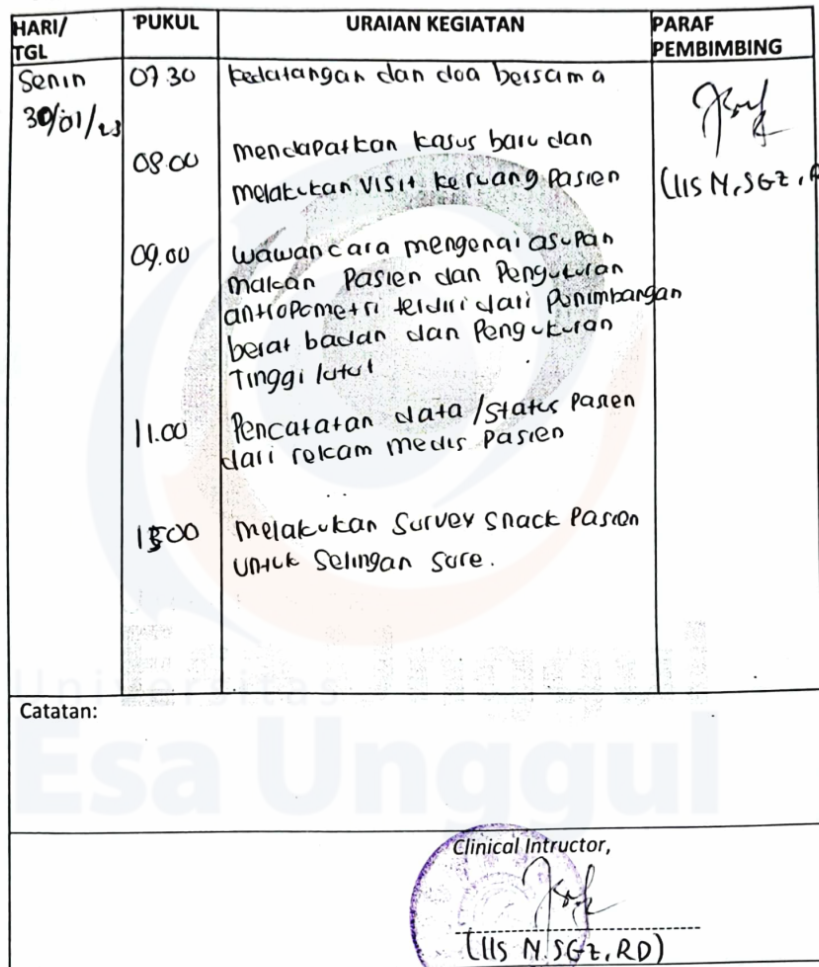 HARI/ TGL PUKUL URAIAN KEGIATAN PARAF PEMBIMBING
Senin 07.30 kedatangan dan doa bersama
30/01/23
08.00 mendapatkan kasus baru dan
melakukan visit keruang Pasien
(IIS N, SGZ, R
09.00 wawancara mengenai asupan
makan Pasien dan Pengukuran
antropometri terdiri dari Penimbangan
berat badan dan Pengukuran
Tinggi lutut
11.00 Pencatatan data/status Pasien
dari rekam medis pasien
15.00 melakukan survey snack Pasien
untuk Selingan Sore.
Universitas
Catatan:
Esa Unggul
Clinical Intructor,
(IIS N. SGZ, RD)